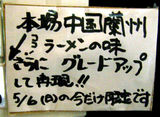 本場中国蘭州
ラーメンの味
さらに グレードアップ
して再現!!
5/6(日)の今だけ限定です